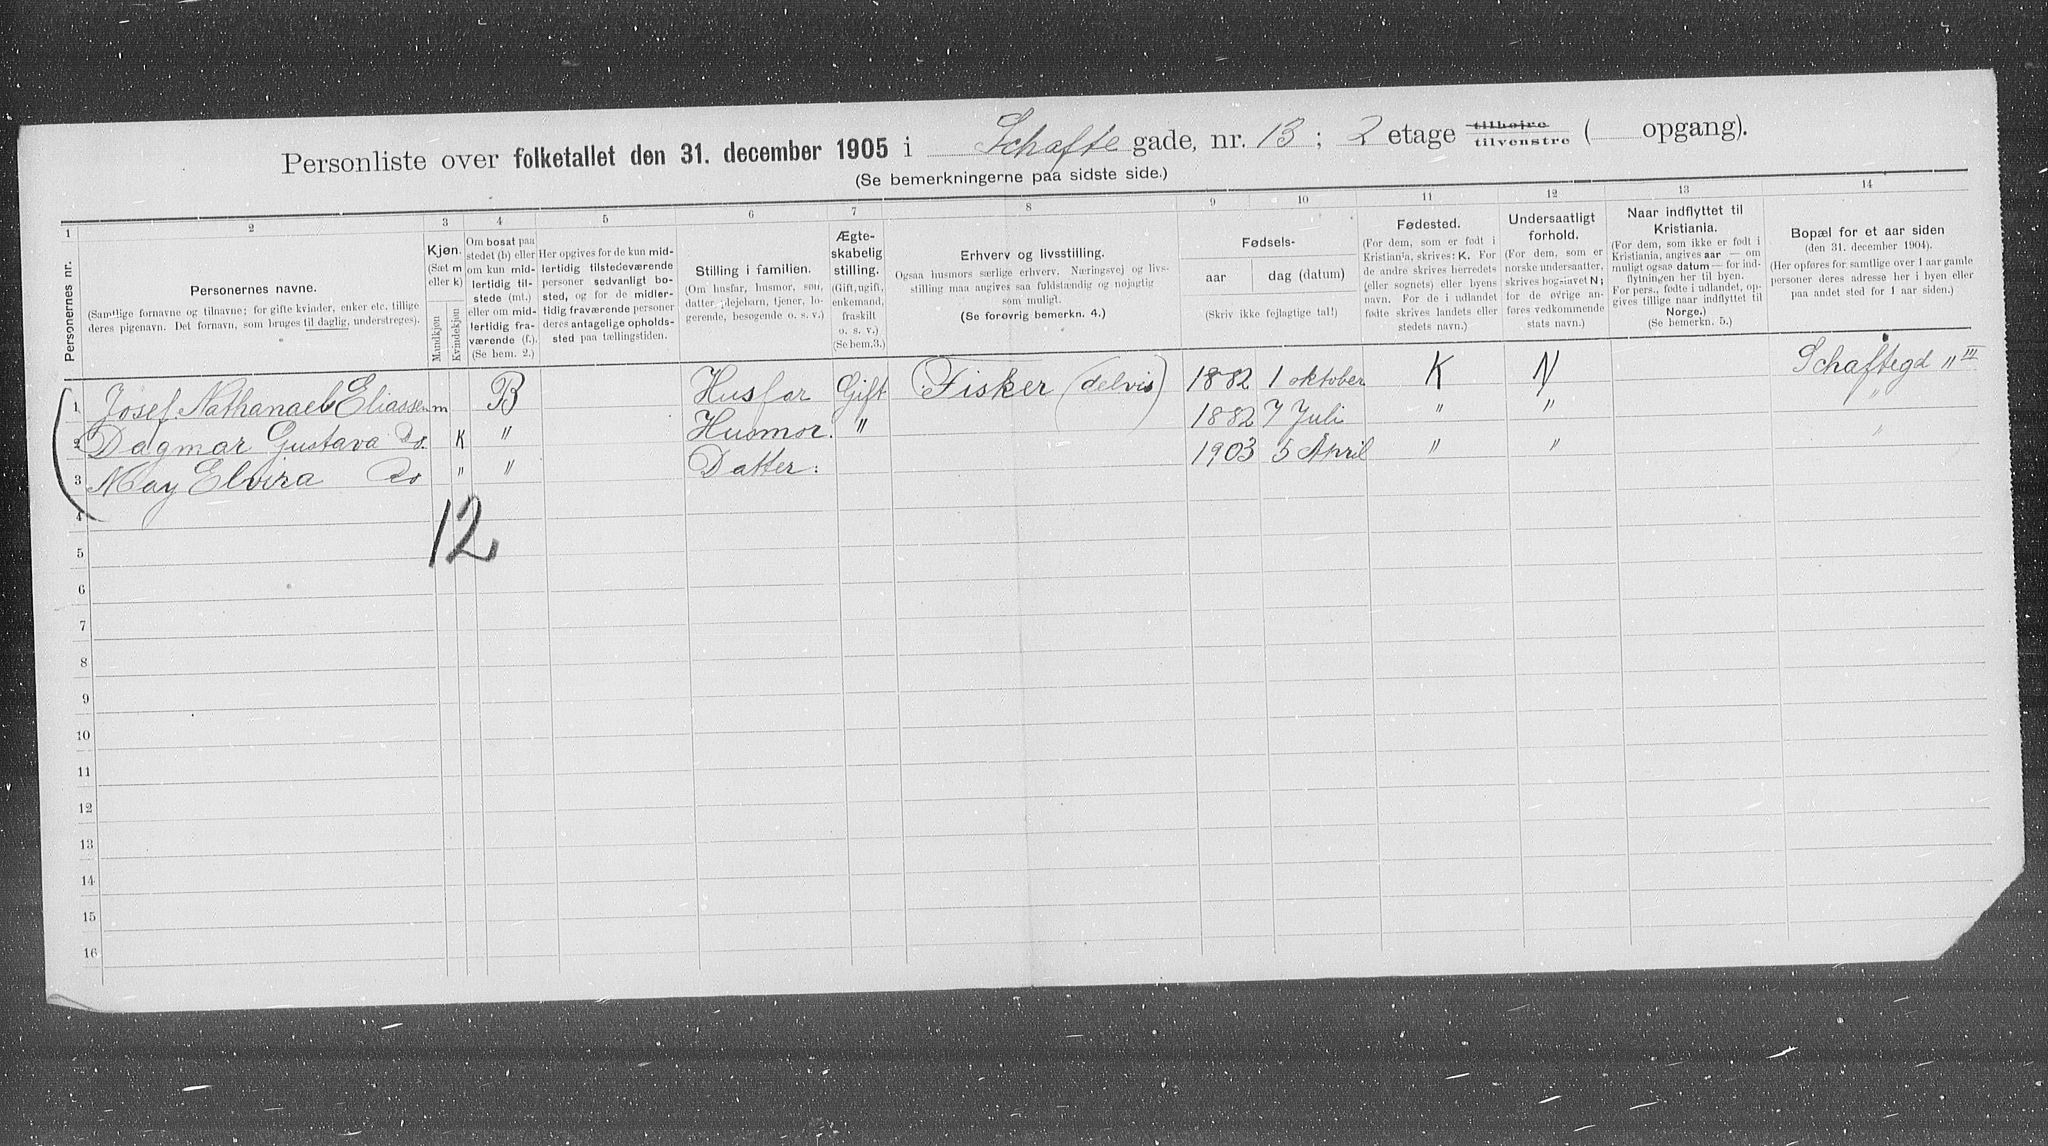 Personliste over folketallet den 31. december 1905 i Schafte gade, nr. 13; 2 etage tilhøjre tilvenstre ( opgang).
(Se bemerkningerne paa sidste side.)
1 2 3 4 5 6 7 8 9 10 11 12 13 14
Personernes nr.
Personernes navne.
(Samtlige fornavne og tilnavne; for gifte kvinder, enker etc. tillige
deres pigenavn. Det fornavn, som bruges til daglig, understreges).
Kjøn.
(Sæt m
eller k)
Mandkjøn
Kvindekjøn
Om bosat paa
stedet (b) eller
om kun mid-
lertidig til-
stede (mt.)
eller om mid-
lertidig fra-
værende (f.).
(Se bem. 2.)
Her opgives for de kun mid-
lertidig tilstedeværende
personer sedvanlig bo-
sted, og for de midler-
tidig fraværende personer
deres antagelige opholds-
sted paa tællingstiden.
Stilling i familien.
(Om husfar, husmor, søn,
datter, plejebarn, tjener, lo-
gerende, besøgende o. s. v.)
Ægte-
skabelig
stilling.
(Gift, ugift,
enkemand,
fraskilt
o. s. v.)
(Se bem.3.)
Erhverv og livsstilling.
Ogsaa husmors særlige erhverv. Næringsvej og livs-
stilling maa angives saa fuldstændig og nøjagtig
som muligt.
(Se forøvrig bemerkn. 4.)
Fødsels-
aar
dag (datum)
(Skriv ikke fejlagtige tal!)
Fødested.
(For dem, som er født i
Kristiania, skrives: K. For
de andre skrives herredets
(eller sognets) eller byens
navn. For de i udlandet
fødte skrives landets eller
stedets navn.)
Undersaatligt
forhold.
(For dem, som er
norske undersaatter,
skrives bogstavet N;
for de øvrige an-
føres vedkommende
stats navn.)
Naar indflyttet til
Kristiania.
(For dem, som ikke er født i
Kristiania, angives aar — om
muligt ogsaa datum — for ind-
flytningen her til byen.
For pers., fødte i udlandet, op-
gives tillige naar indflyttet til
Norge.)
(Se bemerkn. 5.)
Bopæl for et aar siden
(den 31. december 1904).
(Her opføres for samtlige over 1 aar gamle
personer deres adresse her i byen eller
paa andet sted for 1 aar siden.)
1 Josef Nathanael Eliassen m B Husfar Gift Fisker (delvis) 1882 1 oktober K N Schaftegd " III
2 Dagmar Gustava Do. K " Husmor. " 1882 7 Juli " " "
3 May Elvira Do " " Datter. 1903 5 April " " "
4
12
5
6
7
8
9
10
11
12
13
14
15
16